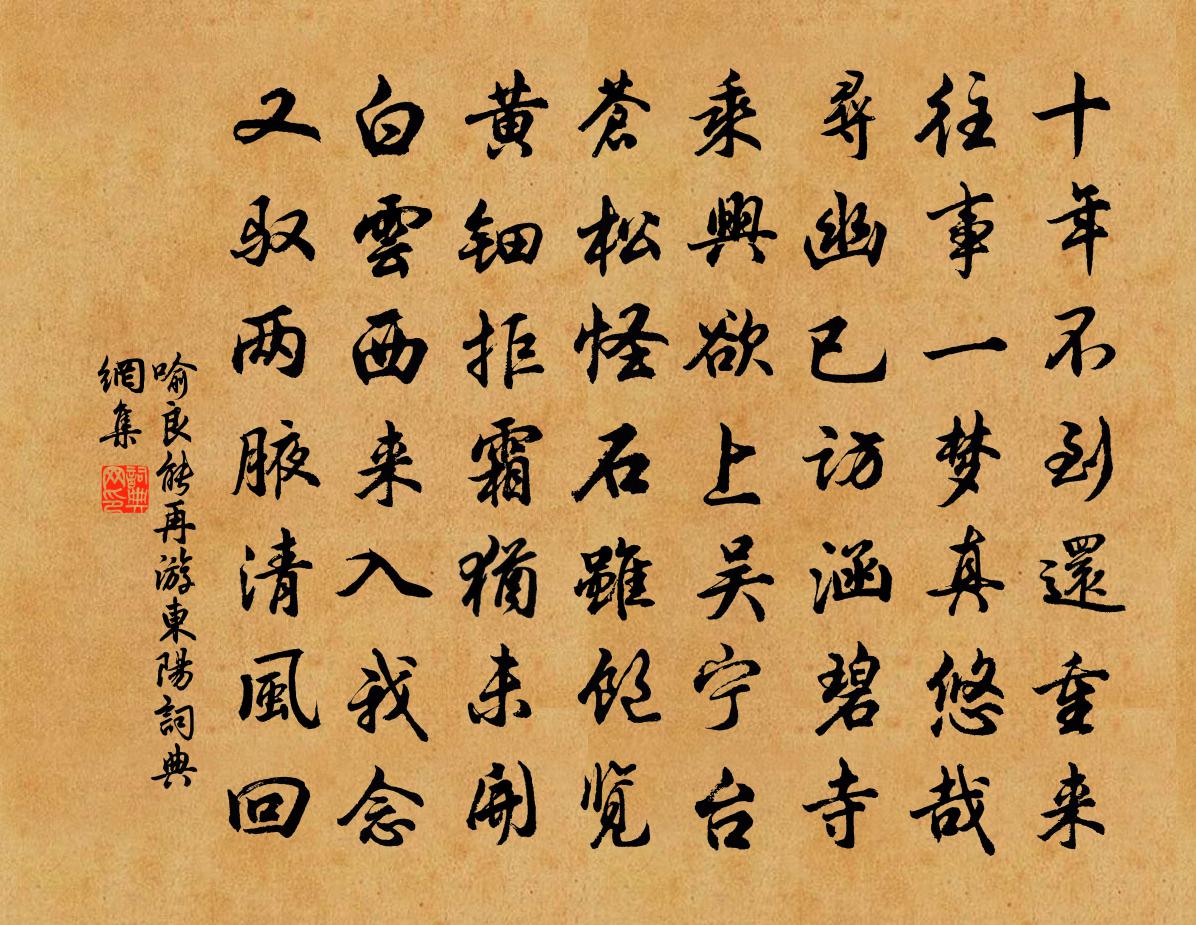 十年不到還重来
往事一梦真悠哉
尋幽已访涵碧寺
乘興欲上吴宁台
蒼松怪石雖饱览
黄钿拒霜猶未開
白雲西来入我念
又驭两腋清風回
喻良能再游東陽詞典
網集
詞典
网印